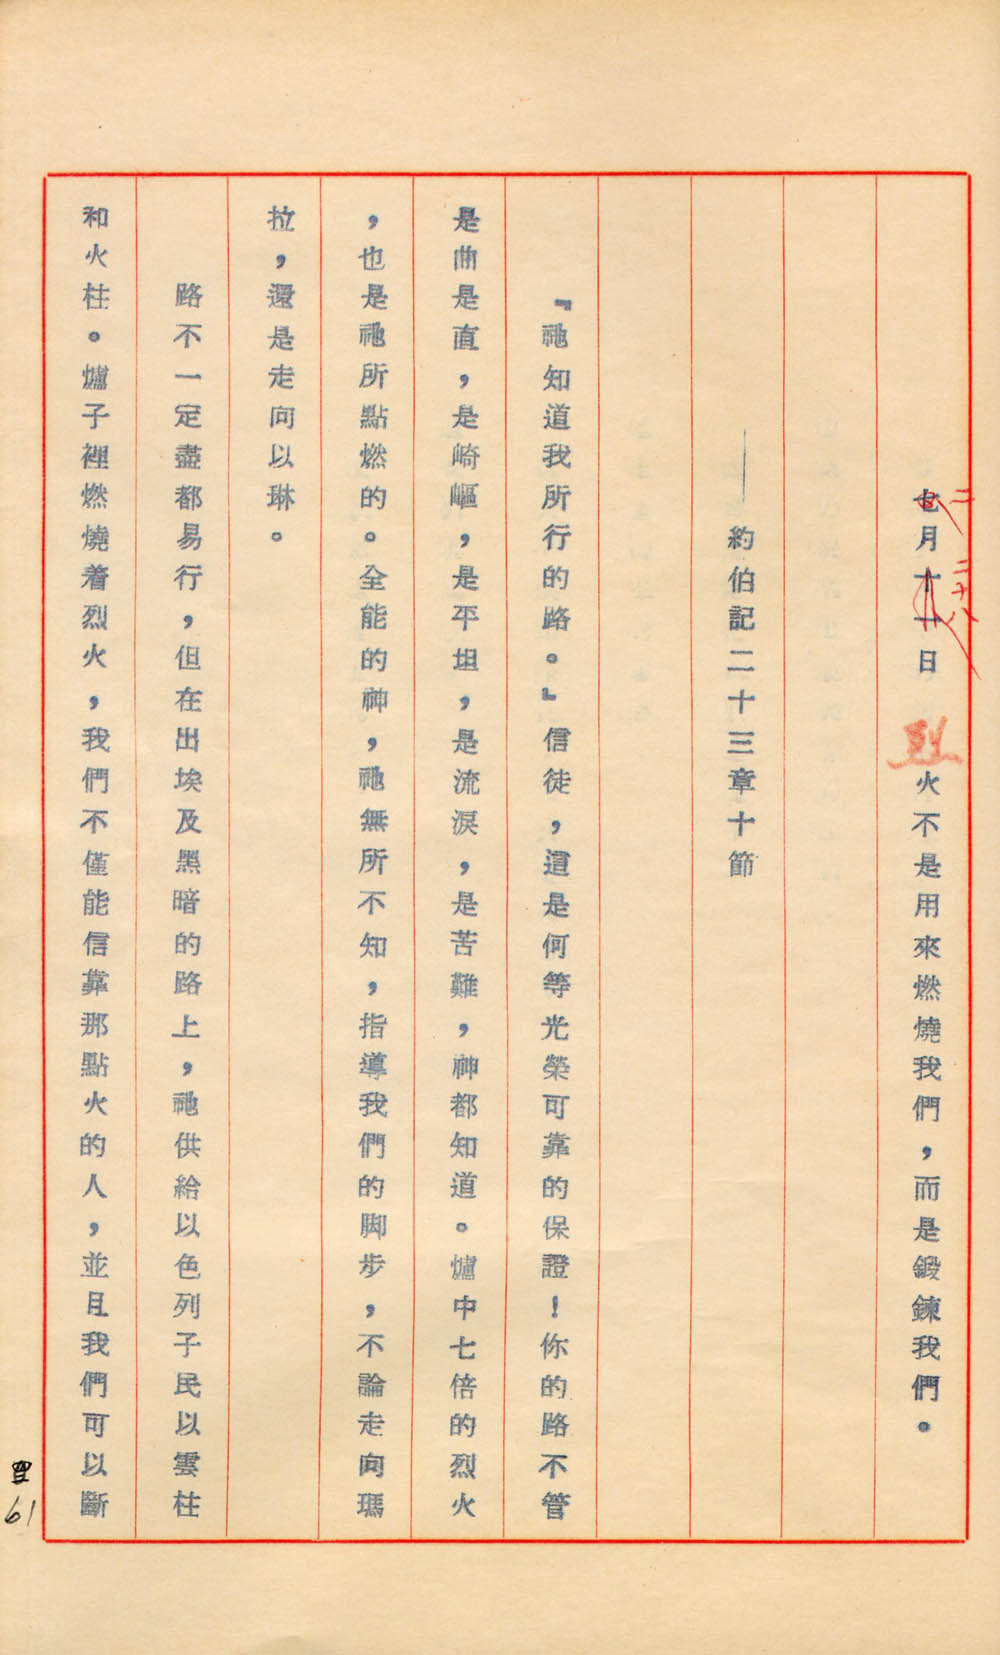 七月十一日　烈火不是用來燃燒我們，而是鍛鍊我們。
二　二十八
——約伯記二十三章十節
『祂知道我所行的路。』信徒，這是何等光榮可靠的保證！你的路不管
是曲是直，是崎嶇，是平坦，是流淚，是苦難，神都知道。爐中七倍的烈火
，也是祂所點燃的。全能的神，祂無所不知，指導我們的脚步，不論走向瑪
拉，還是走向以琳。
路不一定盡都易行，但在出埃及黑暗的路上，祂供給以色列子民以雲柱
和火柱。爐子裡燃燒着烈火，我們不僅能信靠那點火的人，並且我們可以斷
61